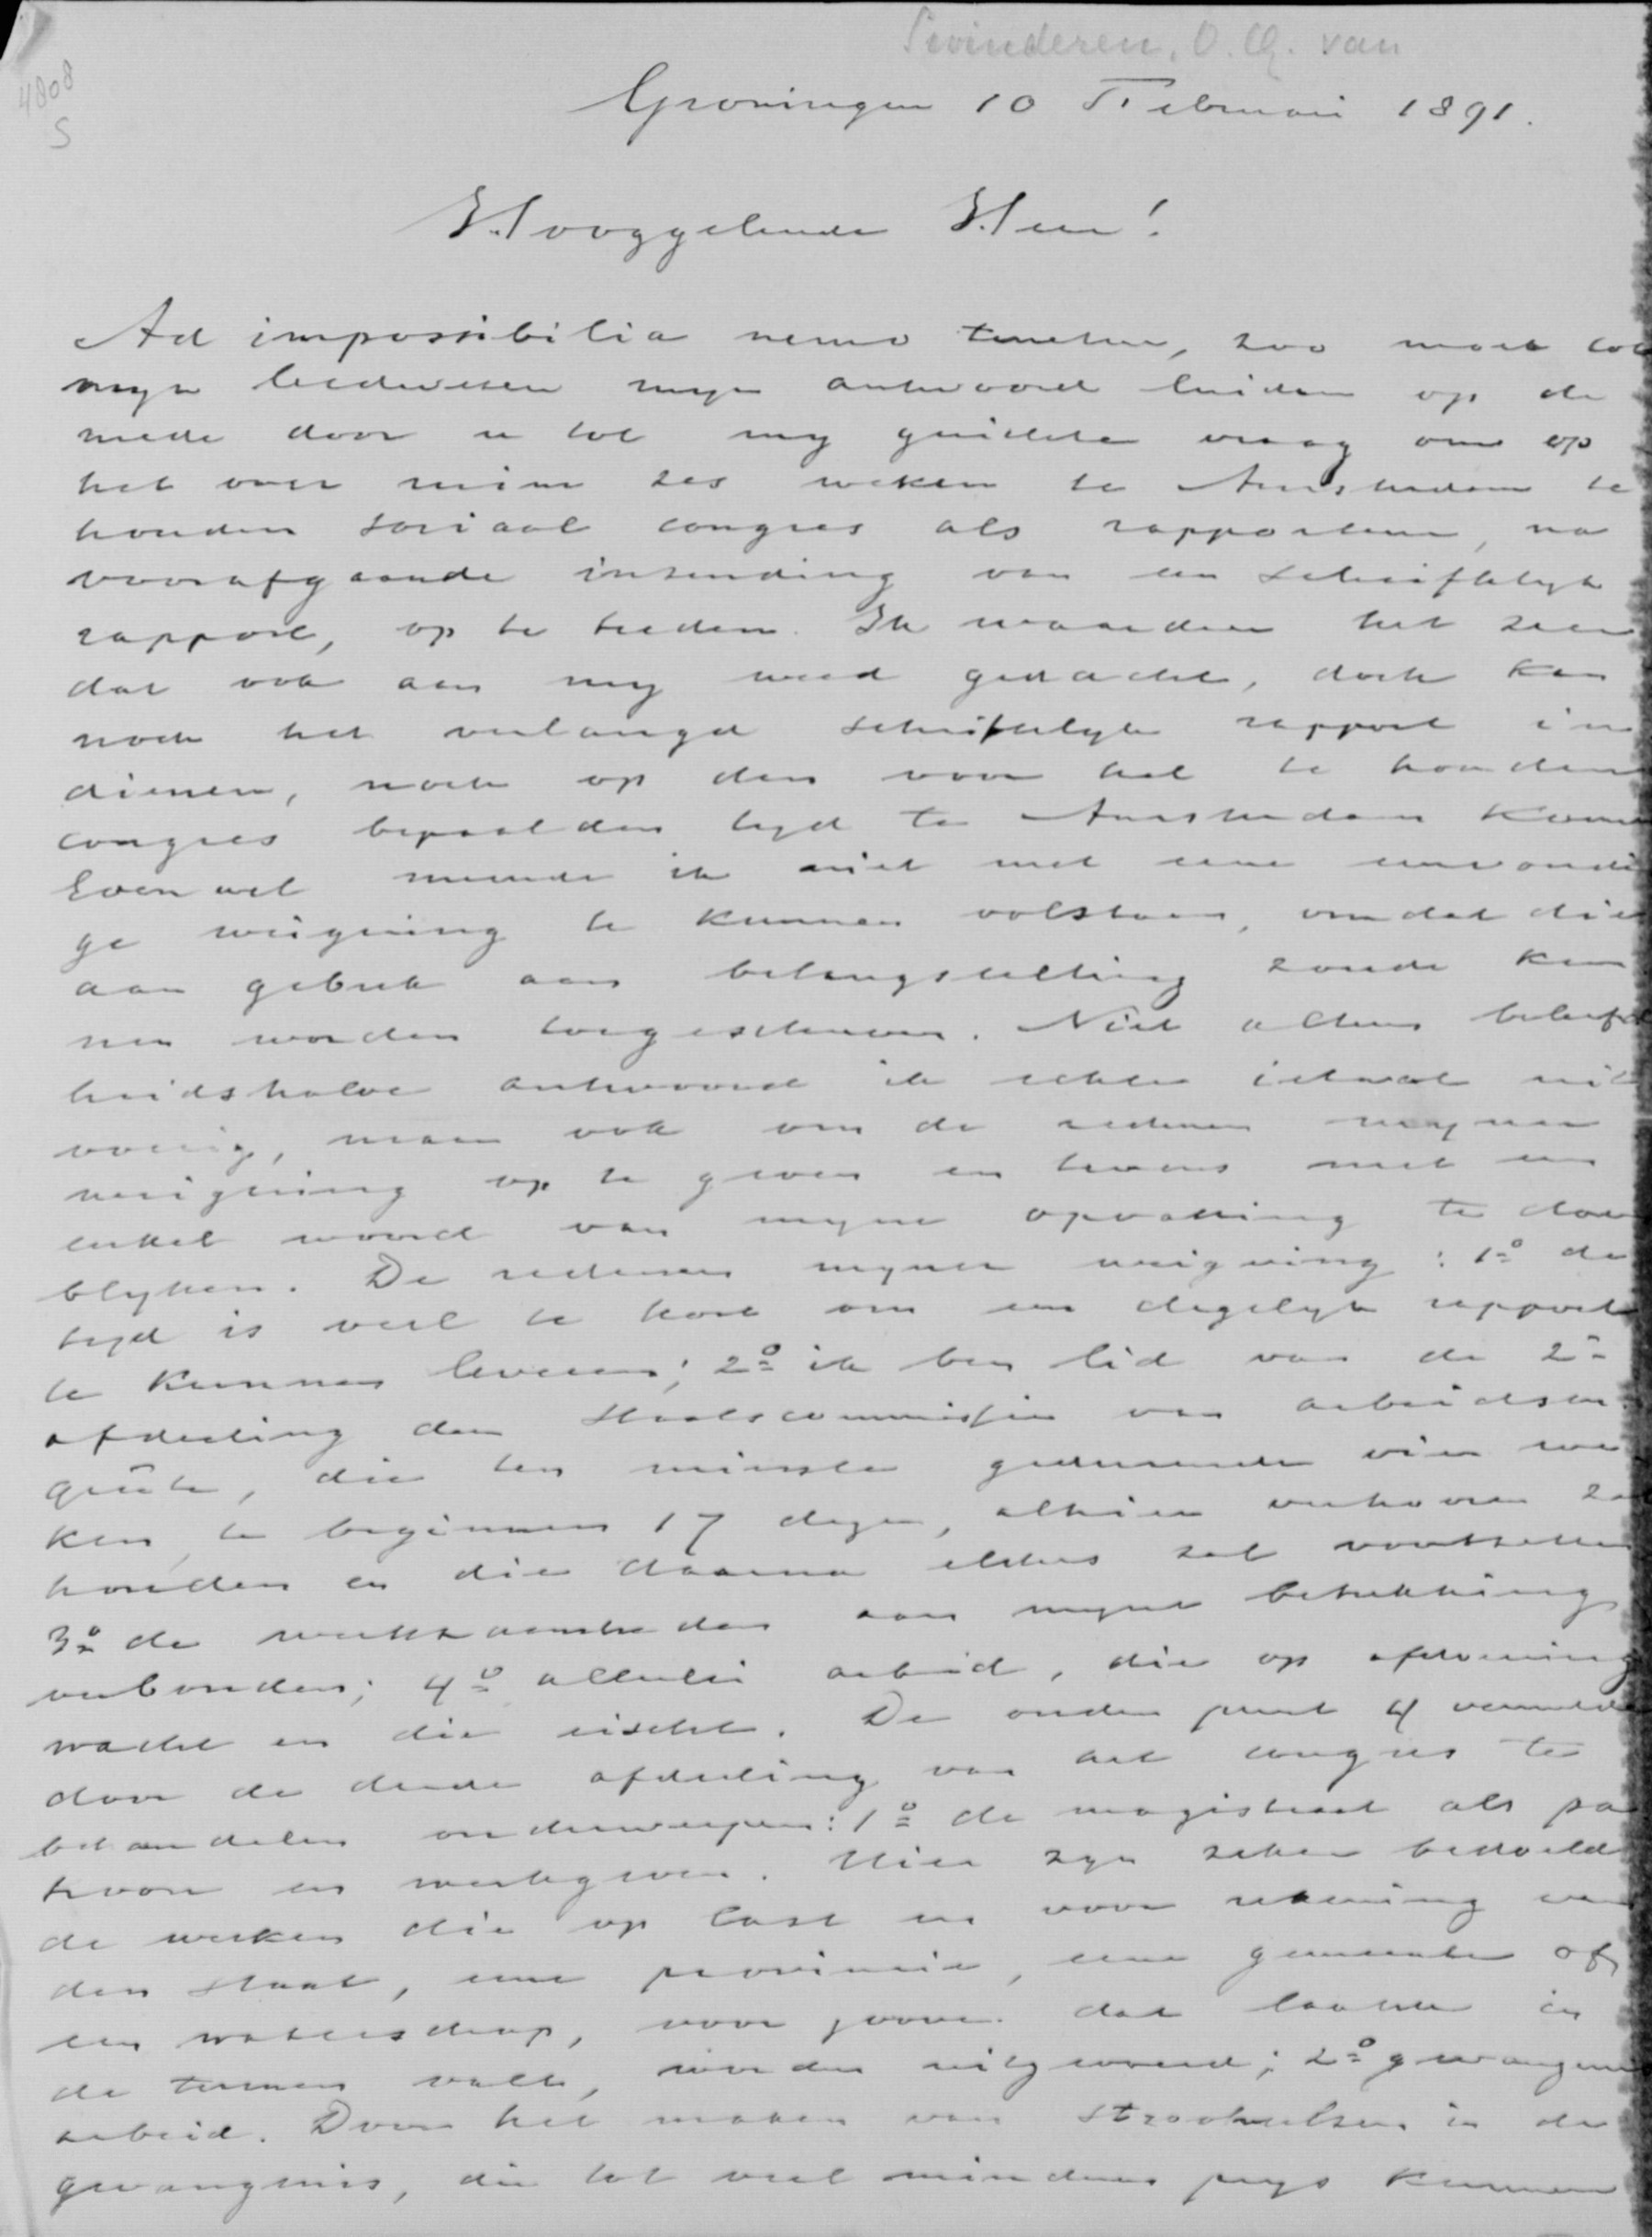 Swinderen, O. Q. van
4808
S
Groningen 10 Februari 1891.
Hooggeleerde Heer!
Ad impossibilia nemo tenetur, zoo moet tot
myn leedwezen myn antwoord luiden op de
mede door u tot my gerichte vraag om op
het over ruim zes weken te Amsterdam te
houden sociaal congres als rapporteur, na
voorafgaande inzending van een schriftelyk
rapport, op te treden. Ik waardeer het zeer
dat ook aan my werd gedacht, doch kan
noch het verlangd schriftelyk rapport in
dienen, noch op den voor het te houden
congres bepaalden tyd te Amsterdam komen
Evenwel meende ik niet met eene eenvoudi
ge weigering te kunnen volstaan, omdat die
aan gebrek aan belangstelling zoude kun
nen worden toegeschreven. Niet alleen beleefd
heidshalve antwoord ik echter ietwat uit
voerig, maar ook om de redenen myner
weigering op te geven en tevens met een
enkel woord van myne opvatting te doen
blyken. De redenen myner weigering: 1o de
tyd is veel te kort om een degelyk rapport
te kunnen leveren; 2o ik ben lid van de 2e
afdeeling der Staatscommissie van arbeidsen
quête, die ten minste gedurende vier we
ken, te beginnen 17 dezer, alhier verhooren zal
houden en die daarna elders zal voortzetten
3o de werkzaamheden aan myne betrekking
verbonden; 4o allerlei arbeid, die op afdoening
wacht en die eischt. De onder punt 4 vermelde
door de derde afdeeling van het congres te
behandelen onderwerpen: 1o de magistraat als pa
troon en werkgever. Hier zyn zeker bedoeld
de werken die op last en voor rekening van
den staat, eene provincie, eene gemeente of
een waterschap, voor zoover dat laatste in
de termen valt, worden uitgevoerd; 2o gevangenen
arbeid. Door het maken van stroohulsen in de
gevangenis, die tot veel minderen prys kunnen